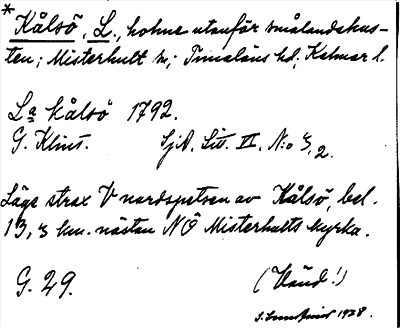 * Kålsö, L., holme utanför smålandskus-
ten; Misterhult sn; Tunaläns hd, Kalmar l.
La Kålsö 1792.
G. Klint. Sj.A. Litt. II, N:o 3, 2.
Läge strax V nordspetsen av Kålsö, bel.
13,3 km. nästan NÖ Misterhults kyrka.
G. 29. (Vänd!)
1928.